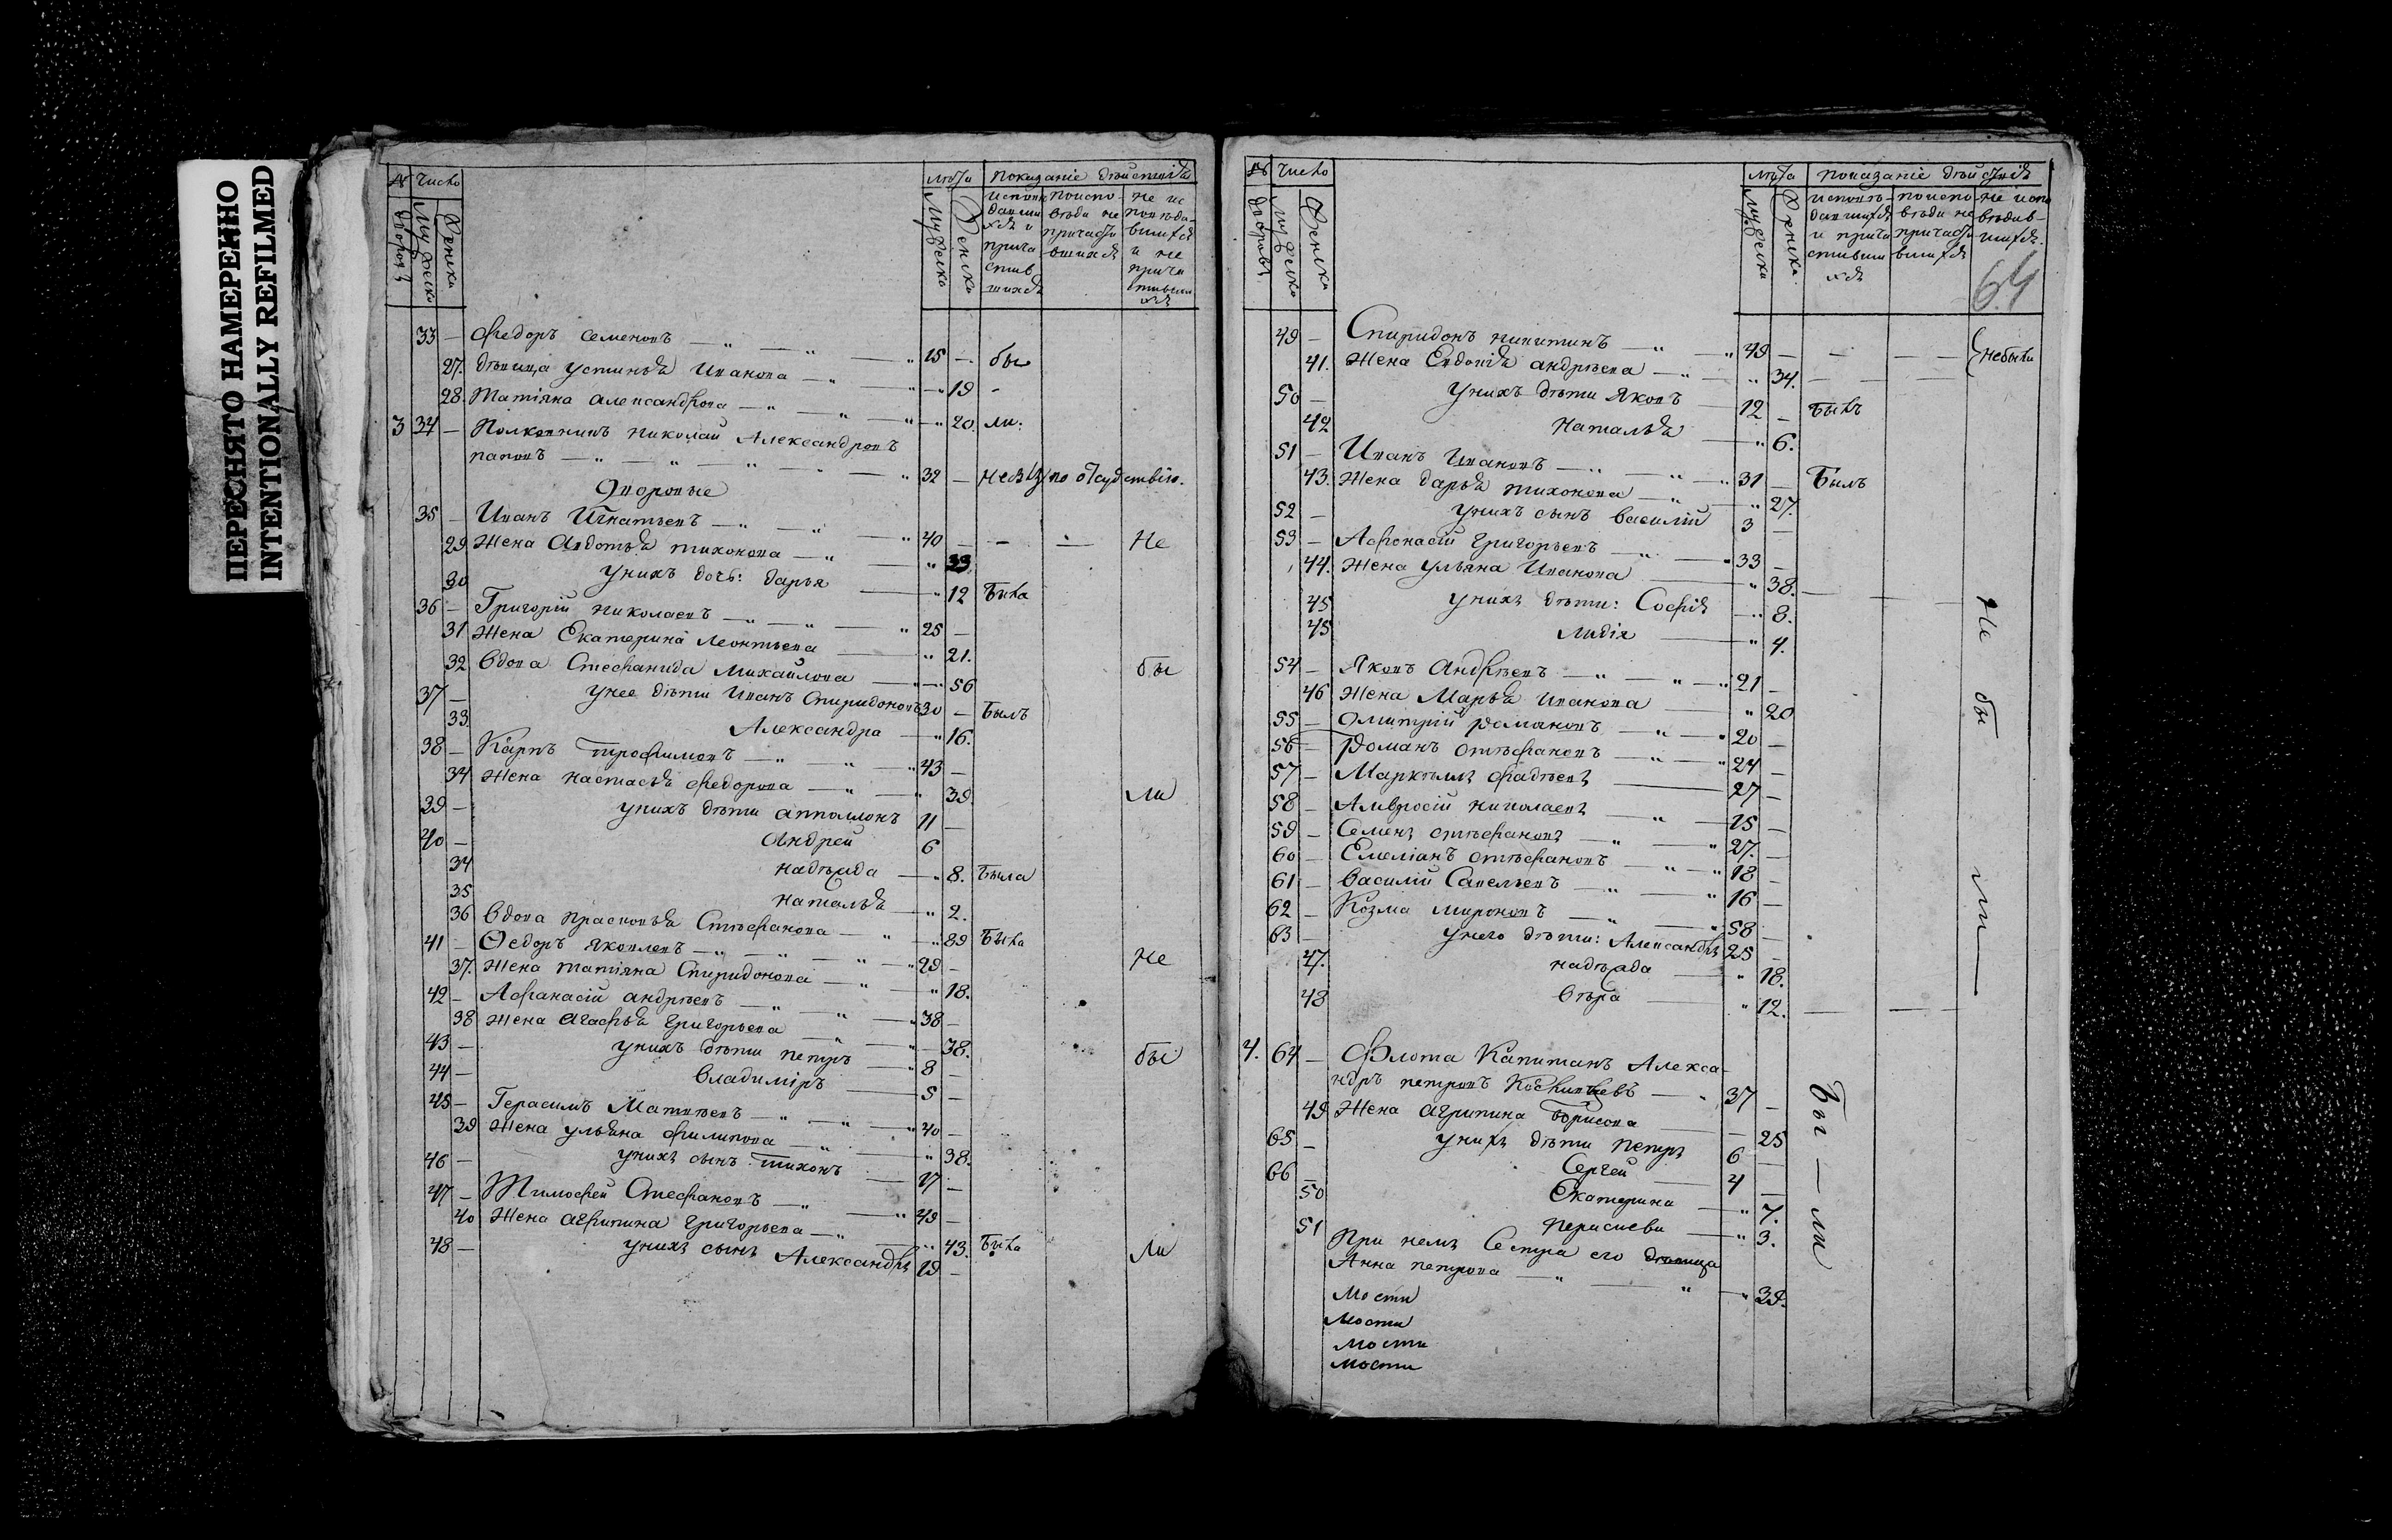 ПЕРЕСНЯТО НАМЕРЕННО
INTENTIONALLY REFILMED
№ Число лѣта показаніе дѣйствія
33 — Федоръ Семеновъ 15 — бы
27. дѣвица Устинья Иванова — 19 -
28. Татіяна Александрова — 20. ли:
3 34 — Полковникъ Николай Александровъ
32 — по отсудствію.
Дворовые
35 — Иванъ Игнатьевъ 40 — Не
29 Жена Авдотья Тихонова 39.
30 у нихъ дочь: Дарья 12 Была
36 — Григорій Николаевъ 25 —
31 Жена Екатерина Леонтьева 21.
32 вдова Стефанида Михайлова 56 бы
37 — у нее дѣти Иванъ Спиридоновъ 30 — Былъ
33 Александра 16.
38 — Карпъ Трофимовъ 43 —
34 Жена Настасья Федорова 39. ли
39 — у нихъ дѣти Апполлонъ 11 —
40 — Андрей 6
34 Надѣжда 8. Была
35 Наталья 2.
36 вдова Прасковья Стефанова 89 Была
41 — Ѳедоръ Яковлевъ 29 — Не
37. Жена Татіяна Спиридонова 18.
42 — Афанасій Андрѣевъ 38 —
38 Жена Агафья Григорьева 38.
43 — у нихъ дѣти Петръ 8 бы
44 — Владиміръ 5 —
45 — Герасимъ Матвѣевъ 40 —
39 Жена Ульяна Филипова 38.
46 — у нихъ сынъ Тихонъ 17 —
47 — Тимофей Стефановъ 49 —
40 Жена Агрипина Григорьева 43. Была Ли
48 — у нихъ сынъ Александръ 19 —
№ Число лѣта показаніе дѣйствія
64
49 — Спиридонъ Никитинъ 49 — небыли
41. Жена Евдокія Андрѣева 34.
50 — у нихъ дѣти Яковъ 12 — Былъ
42 Наталья 6.
51 — Иванъ Ивановъ 31 — Былъ
43. Жена Дарья Тихонова 27.
52 — у нихъ сынъ Василій 3 —
53 — Афонасій Григорьевъ 33 —
44. Жена Ульяна Иванова 38.
45 у нихъ дѣти: Софія 8. Не
45 Лидія 4.
54 — Яковъ Андрѣевъ 21 —
46 Жена Марья Иванова 20 бы
55 — Дмитрій Романовъ 20 —
56 — Романъ Стефановъ 24 —
57 — Фадѣевъ 27 —
58 — Амвросій Николаевъ 15 —
59 — Семенъ Стефановъ 27. —
60 — Емеліанъ Стефановъ 18 — ли
61 — Василій Савельевъ 16 —
62 — Козма Мироновъ 58 —
63 — у него дѣти: Александръ 25 —
47. Надѣжда 18.
48 Вѣра 12.
4. 64 — Флота Капитанъ Алекса-
ндръ Петровъ 37 —
49 Жена Агрипина Борисова 25 Бы — ли
65 — у нихъ дѣти Петръ 6 —
66 — Сергей 4 —
50 Екатерина 7.
51 3.
При немъ Сестра его дѣвица
Анна Петрова 39.
Мости
Мости
Мости
Мости